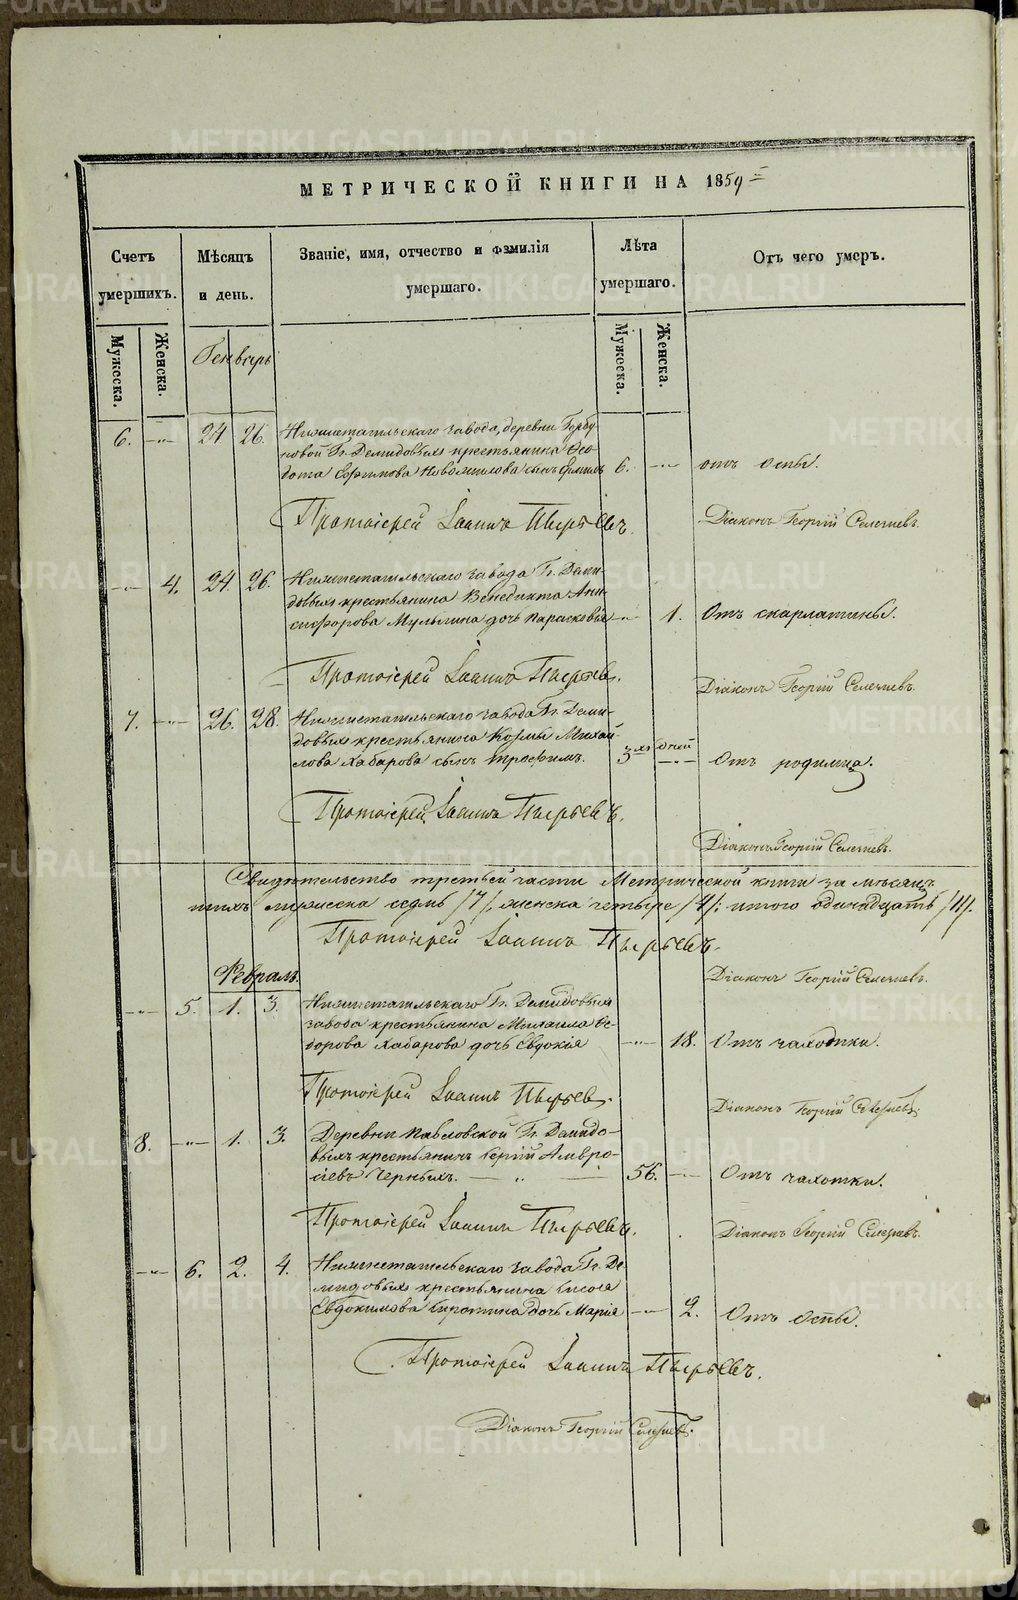 МЕТРИЧЕСКОЙ КНИГИ НА 1859
Счетъ умершихъ.
Мѣсяцъ и день.
Званіе, имя, отчество и фамилія умершаго.
Лѣта умершаго.
Отъ чего умеръ.
Мужеска.
Женска.
Мужеска.
Женска.
Генварь
6. —"— 24 26. Нижнетагильскаго завода, деревни Горбу-
новой Гг. Демидовыхъ крестьянина Ѳео-
дота Ефимова Новожилова сынъ 6. —"— отъ оспы.
Протоіерей Іоаннъ Пырьевъ.
Діаконъ Георгій Селечневъ.
—"— 4. 24. 26. Нижнетагильскаго завода Гг. Деми-
довыхъ крестьянина Венедикта Ани-
сифорова Мульгина дочь Парасковья —"— 1. Отъ скарлатины.
Протоіерей Іоаннъ Пырьевъ.
Діаконъ Георгій Селечневъ.
7. —"— 26. 28. Нижнетагильскаго завода Гг. Деми-
довыхъ крестьянина Козмы Михай-
лова Хабарова сынъ Трофимъ. 3хъ дней —"— Отъ родимца.
Протоіерей Іоаннъ Пырьевъ.
Діаконъ Георгій Селечневъ.
Свидѣтельство третьей части Метрической книги за мѣсяцъ
мужеска седмь /7/, женска четыре /4/: итого одинадцать /11/.
Протоіерей Іоаннъ Пырьевъ.
Діаконъ Георгій Селечневъ.
Февраль.
—"— 5. 1. 3. Нижнетагильскаго Гг. Демидовыхъ
завода крестьянина Михаила Ѳе-
дорова Хабарова дочь Евдокія —"— 18. Отъ чахотки.
Протоіерей Іоаннъ Пырьевъ.
Діаконъ Георгій Селечневъ.
8. —"— 1. 3. Деревни Павловской Гг. Демидо-
выхъ крестьянинъ Сергій Амвро-
сіевъ Черныхъ. — " — 56. —"— Отъ чахотки.
Протоіерей Іоаннъ Пырьевъ.
Діаконъ Георгій Селечневъ.
—"— 6. 2. 4. Нижнетагильскаго завода Гг. Де-
мидовыхъ крестьянина Сысоя
Евдокимова Сиротина дочь Марія —"— 2. Отъ оспы.
Протоіерей Іоаннъ Пырьевъ.
Діаконъ Георгій Селечневъ.
METRIKI.GASO-URAL.RU